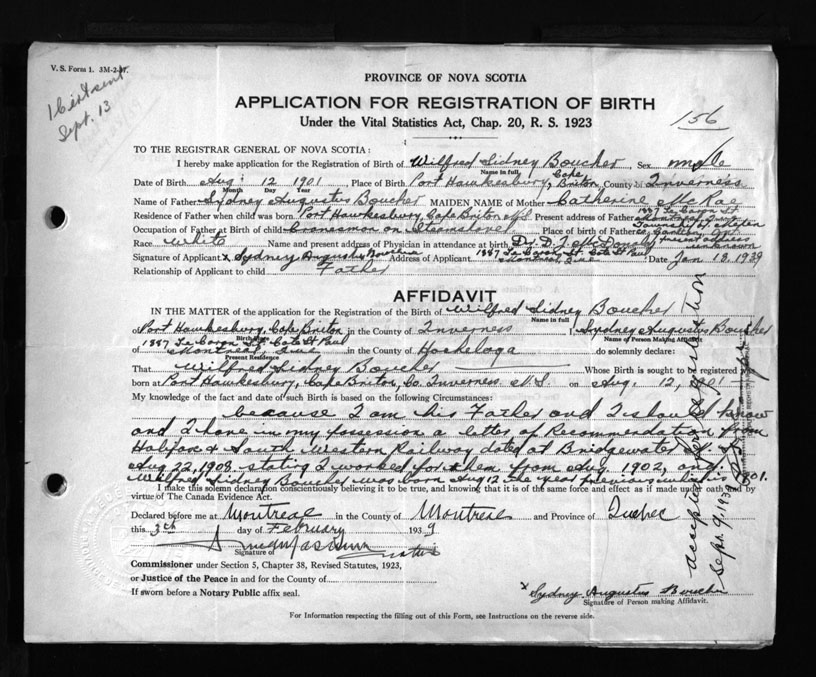 V. S. Form 1. 3M-2-37.
1 Cert sent
Sept. 13
PROVINCE OF NOVA SCOTIA
APPLICATION FOR REGISTRATION OF BIRTH
Under the Vital Statistics Act, Chap. 20, R. S. 1923
156
TO THE REGISTRAR GENERAL OF NOVA SCOTIA:
I hereby make application for the Registration of Birth of Wilfred Sidney Boucher Sex male
Name in full
Date of Birth Aug: 12 1901 Place of Birth Port Hawkesbury, Cape Briton County of Inverness
Month Day Year
Name of Father Sydney Augustus Boucher MAIDEN NAME of Mother Catherine McRae
Residence of Father when child was born Port Hawkesbury, Cape Briton N.S. Present address of Father 1887 Le Caron St
Occupation of Father at Birth of child Cranesman on Steamshovel Place of birth of
Race White Name and present address of Physician in attendance at birth Dr. D. J. McDonald present address unknown
Signature of Applicant x Sydney Augustus Boucher Address of Applicant 1887 Le Caron St. Cote St Paul Montreal, Que Date Jan 18, 1939
Relationship of Applicant to child Father
AFFIDAVIT
IN THE MATTER of the application for the Registration of the Birth of Wilfred Sidney Boucher
Name in full
Port Hawkesbury, Cape Briton in the County of Inverness I, Sydney Augustus Boucher
Birth Place
Name of Person Making Affidavit
of 1887 Le Caron St. Cote St Paul Montreal, Que in the County of Hochelaga do solemnly declare:
Present Residence
That Wilfred Sidney Boucher Whose Birth is sought to be registered
born at Port Hawkesbury, Cape Briton, Co. Inverness N.S. on Aug. 12, 1901
My knowledge of the fact and date of such Birth is based on the following Circumstances:
because I am his Father and I should know
and I have in my possession a letter of Recommendation from
Halifax & South Western Railway dated at Bridgewater N.S.
Aug 22, 1908. stating I worked for them from Aug. 1902, and
Wilfred Sidney Boucher was born Aug 12 the year previous which is 1901.
I make this solemn declaration conscientiously believing it to be true, and knowing that it is of the same force and effect as if made under oath and by
virtue of The Canada Evidence Act.
Declared before me at Montreal in the County of Montreal and Province of Quebec
this 3th day of February 1939
Signature of
Commissioner under Section 5, Chapter 38, Revised Statutes, 1923,
or Justice of the Peace in and for the County of
If sworn before a Notary Public affix seal.
x Sydney Augustus Boucher
Signature of Person making Affidavit.
For Information respecting the filling out of this Form, see Instructions on the reverse side.
accepted for registration
Sept. 9. 1939